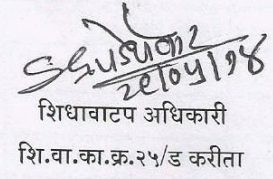 २९/०५/१४
शिधावाटप अधिकारी
शि.वा.का.क्र.२५/ड करीता